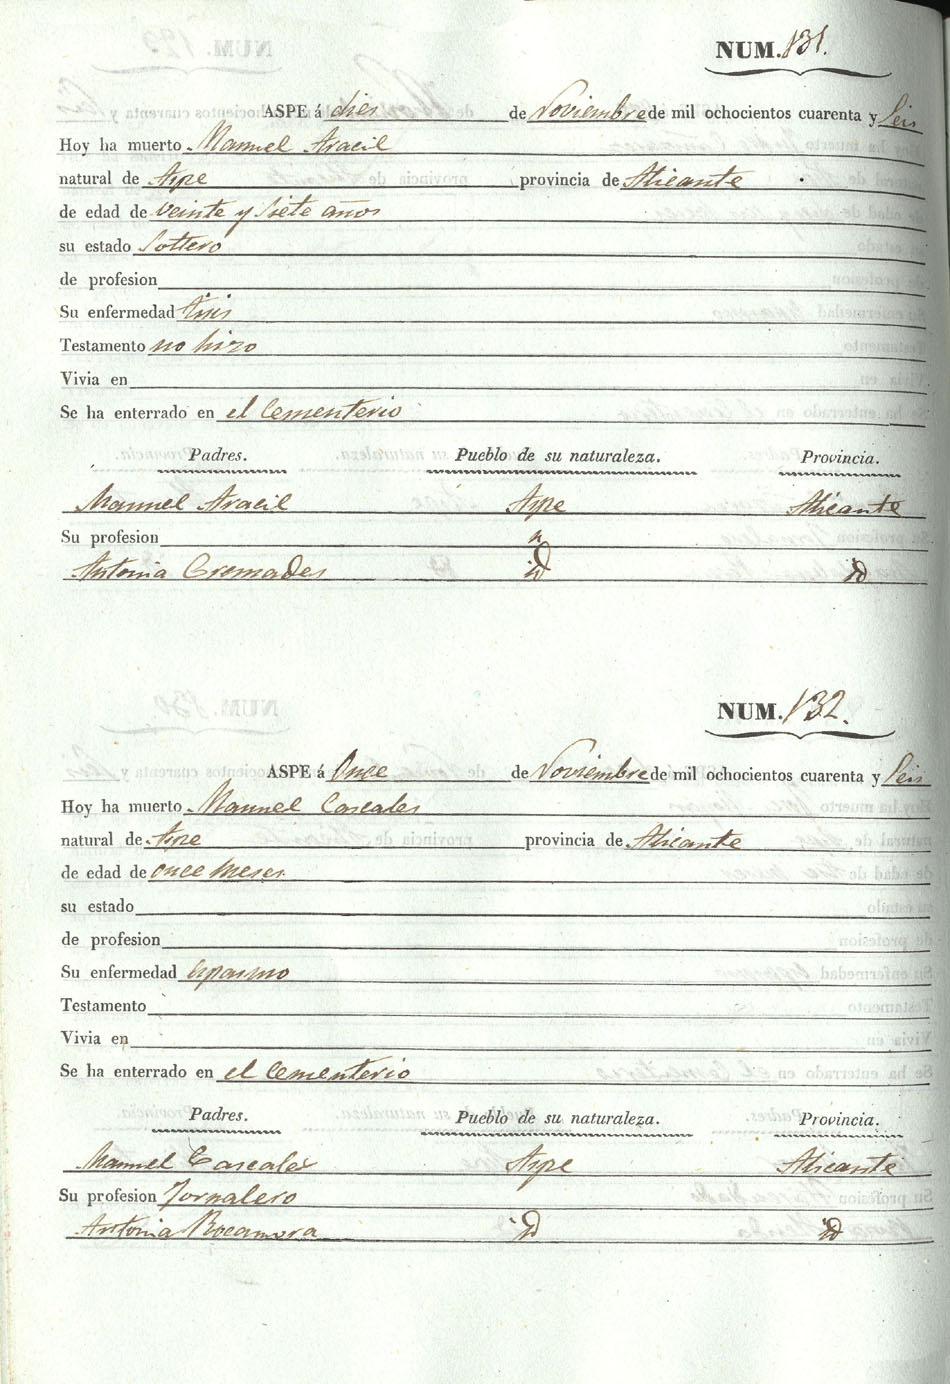 NUM. 131.
ASPE á dies de Noviembre de mil ochocientos cuarenta y Seis
Hoy ha muerto Manuel Aracil
natural de Aspe provincia de Alicante
de edad de veinte y siete años
su estado Soltero
de profesion
Su enfermedad tisis
Testamento no hizo
Vivia en
Se ha enterrado en el Cementerio
Padres. Pueblo de su naturaleza. Provincia.
Manuel Aracil Aspe Alicante
Su profesion
Antonia Cremades id id
NUM. 132.
ASPE á Once de Noviembre de mil ochocientos cuarenta y Seis
Hoy ha muerto Manuel Cascales
natural de Aspe provincia de Alicante
de edad de once meses
su estado
de profesion
Su enfermedad espasmo
Testamento
Vivia en
Se ha enterrado en el Cementerio
Padres. Pueblo de su naturaleza. Provincia.
Manuel Cascales Aspe Alicante
Su profesion Jornalero
Antonia Rocamora id id